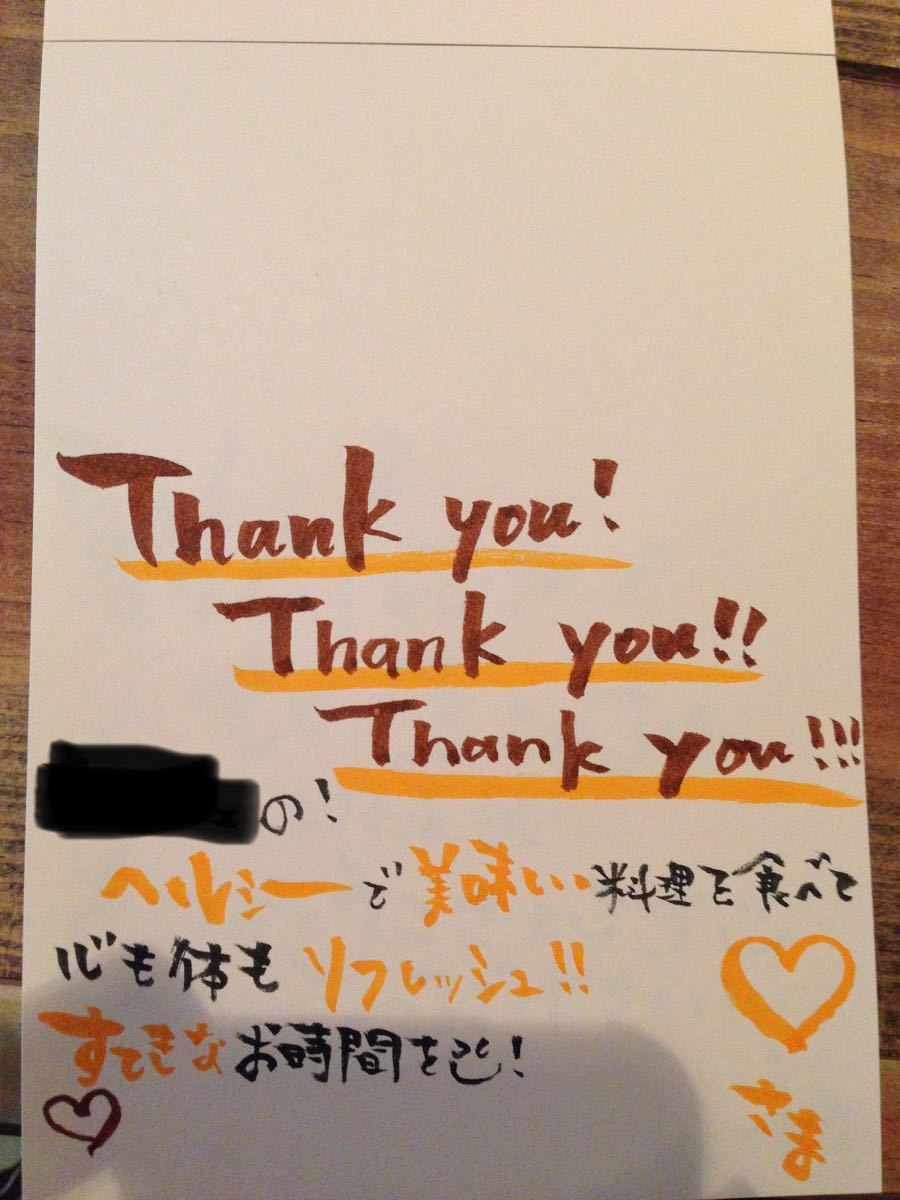 Thank you!
Thank you!!
Thank you!!!
の!
ヘルシーで美味しい料理を食べて
心も体もリフレッシュ!!
すてきなお時間を!
さま